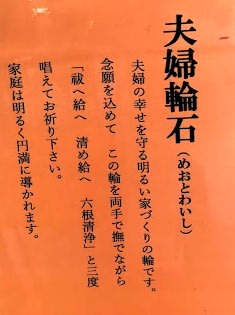 夫婦輪石（めおとわいし）
夫婦の幸せを守る明るい家づくりの輪です。
念願を込めて　この輪を両手で撫でながら
「祓へ給へ　清め給へ　六根清浄」と三度
唱えてお祈り下さい。
家庭は明るく円満に導かれます。